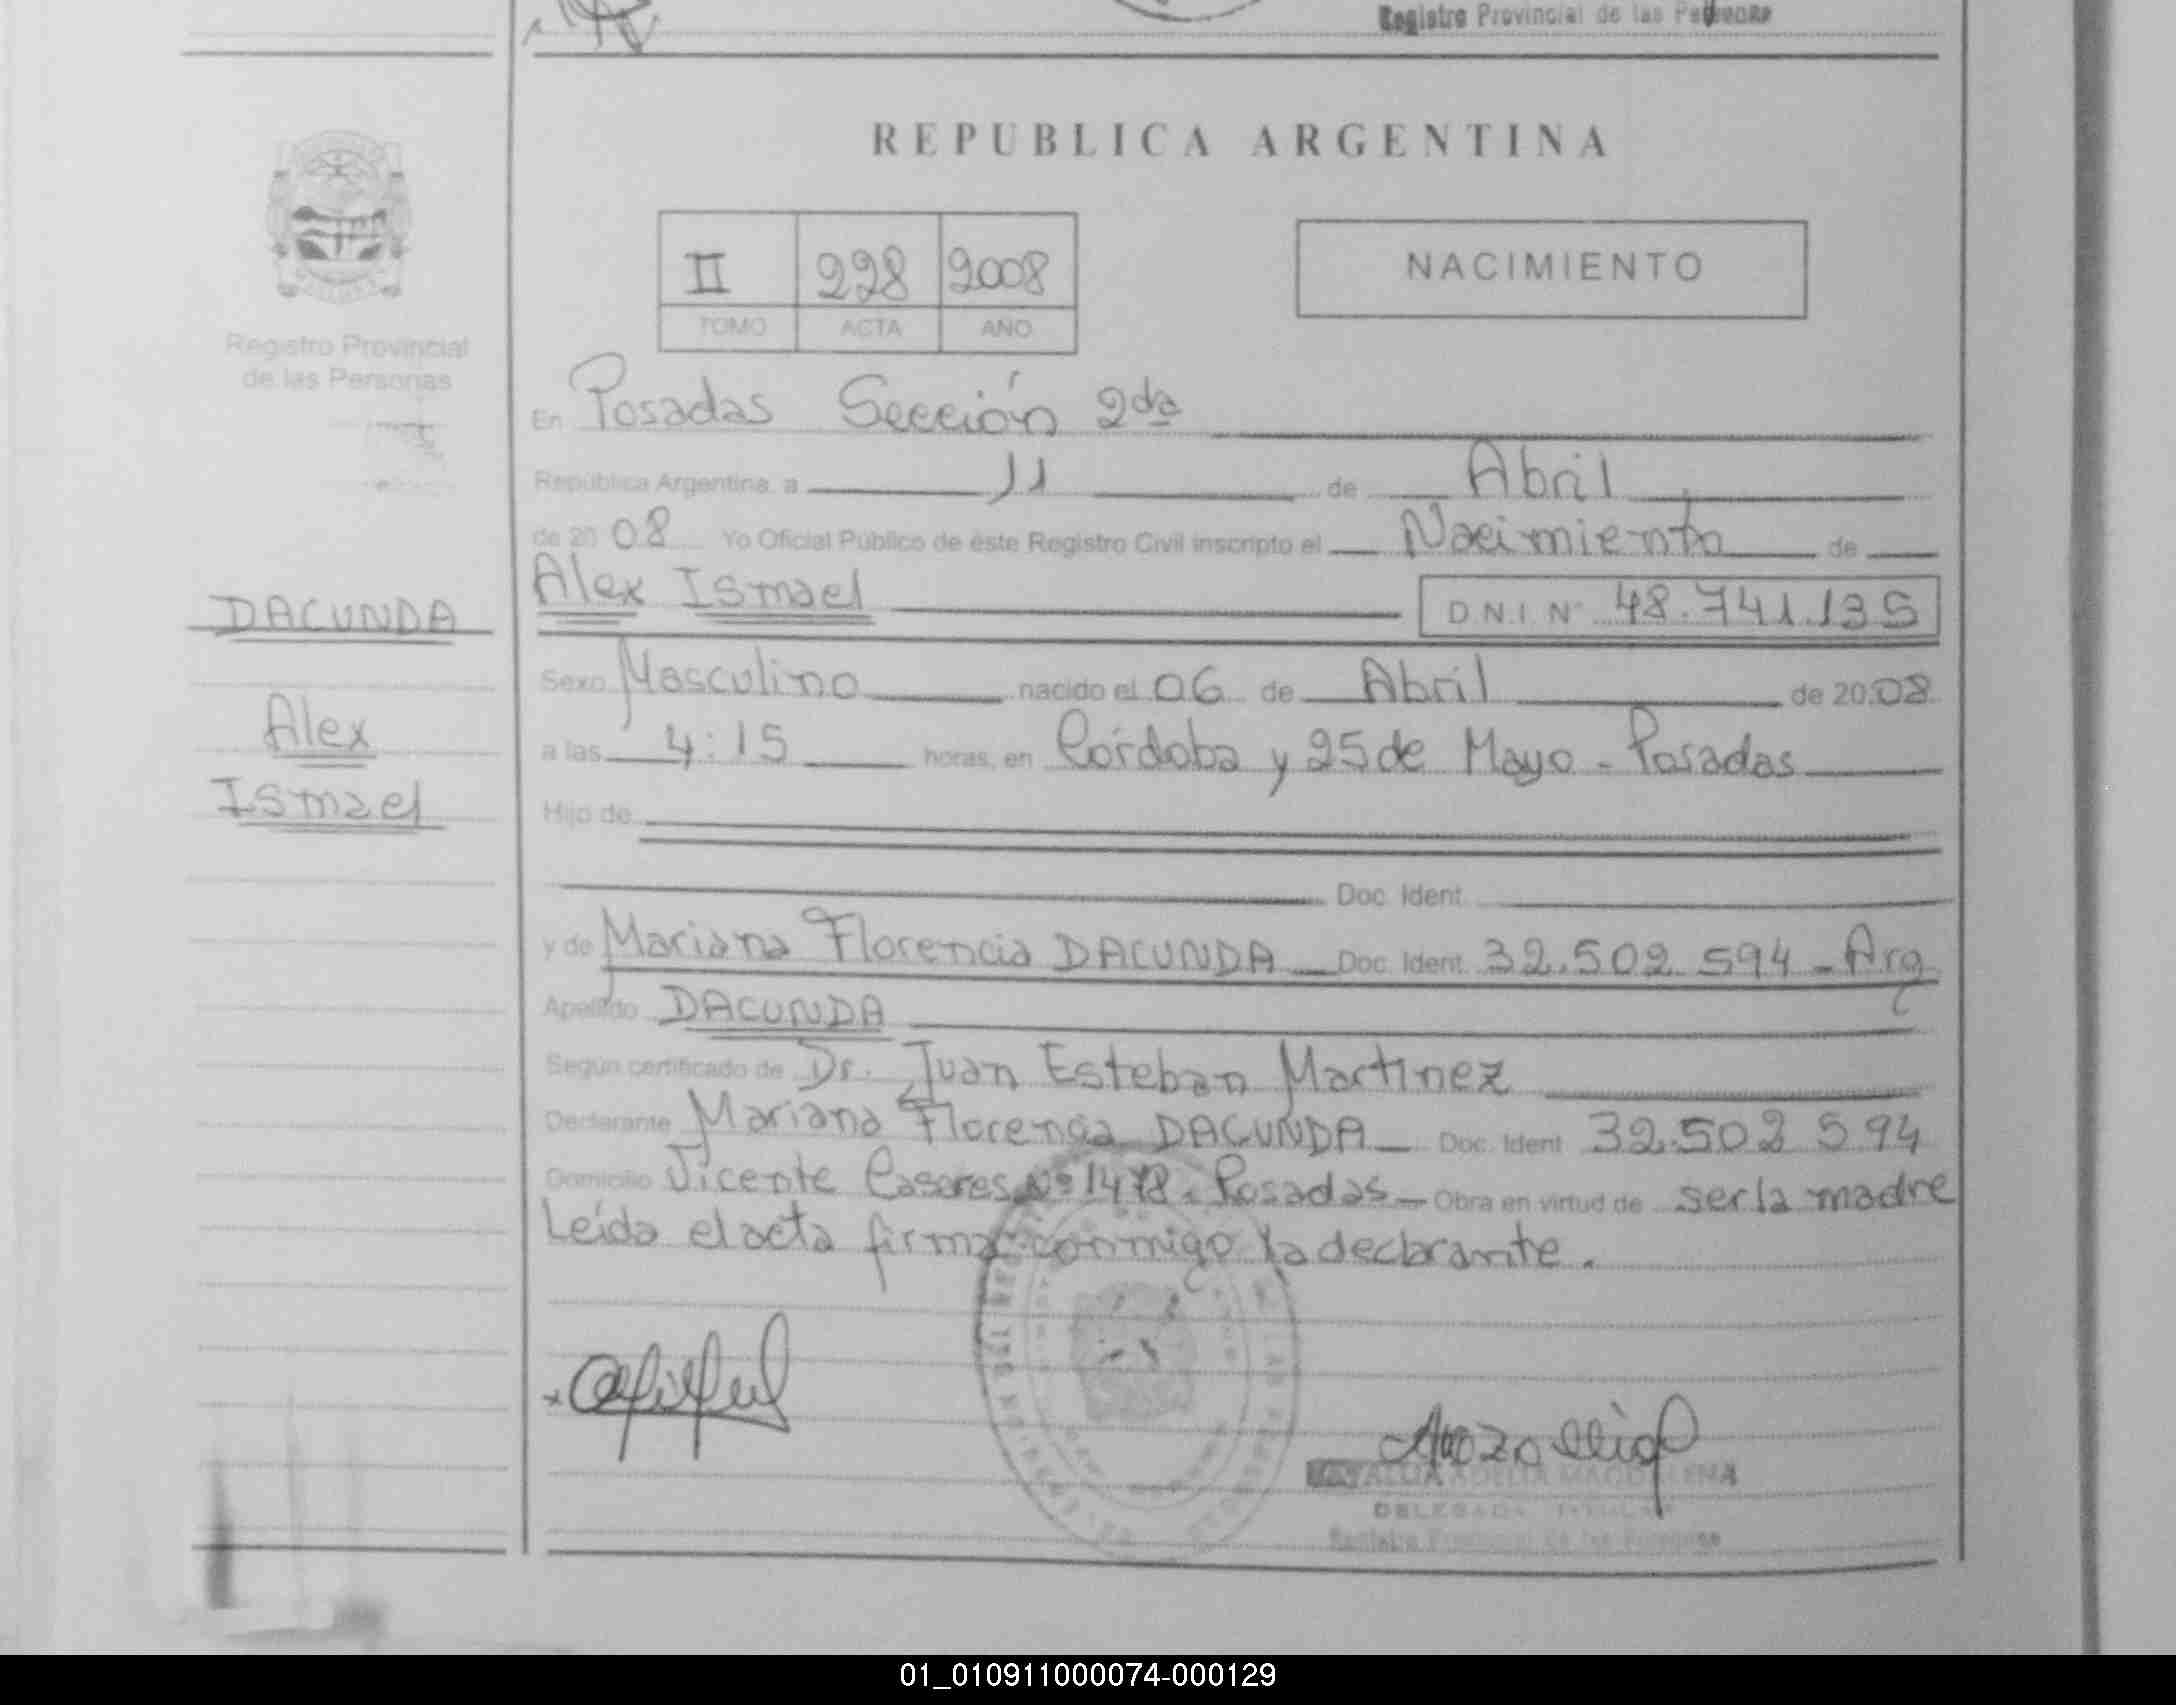 Registro Provincial de las Personas
REPUBLICA ARGENTINA
II 228 2008
TOMO ACTA AÑO
NACIMIENTO
Registro Provincial
de las Personas
En Posadas Sección 2da
República Argentina, a 11 de Abril
de 20 08 Yo Oficial Público de éste Registro Civil inscripto el Nacimiento de
Alex Ismael D.N.I. Nº 48.741.135
DACUNDA
Alex
Ismael
Sexo Masculino nacido el 06 de Abril de 20 08
a las 4:15 horas, en Córdoba y 25 de Mayo - Posadas
Hijo de
Doc. Ident.
y de Mariana Florencia DACUNDA Doc. Ident. 32.502.594 - Arg
Apellido DACUNDA
Según certificado de Dr. Juan Esteban Martinez
Declarante Mariana Florencia DACUNDA Doc. Ident. 32.502.594
Domicilio Vicente Caseres Nº 1478 - Posadas Obra en virtud de ser la madre
Leída el acta firma conmigo la declarante.
ADELIA MAGDALENA
DELEGADA TITULAR
Registro Provincial de las Personas
01_010911000074-000129